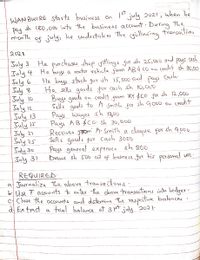 WANBWIRE starts business on 1st July 2021, when he
pay sh 150,000 into the business account. During the
month of July, he undertakes the following transactions
2021
July 3 He purchase shop fittings for sh 25,000 and pays cash
July 4 He buys a motor vehicle from AB & Co on credit sh
July 6 He buys stock for sh 15,000 and pays cash
July 8 He sells goods for cash sh 10,000
July 10 Buys goods on credit from XY & Co for sh 12,000
July 12 Sells goods to A Smith for sh 9,000 on credit
July 13 Pays wages sh
July 15 Pays AB & Co sh 30,000
July 21 Receives from A Smith a cheque for sh 9,000
July 25 Sells goods for cash 3000
July 30 Pays general expenses sh 800
July 31 Draws sh 500 out of business for his personal use
REQUIRED
a Journalize the above transactions
b Use T accounts to enter the above transactions into ledger
c Close the accounts and determine the respective balances
d Extract a trial balance at 31st July 2021